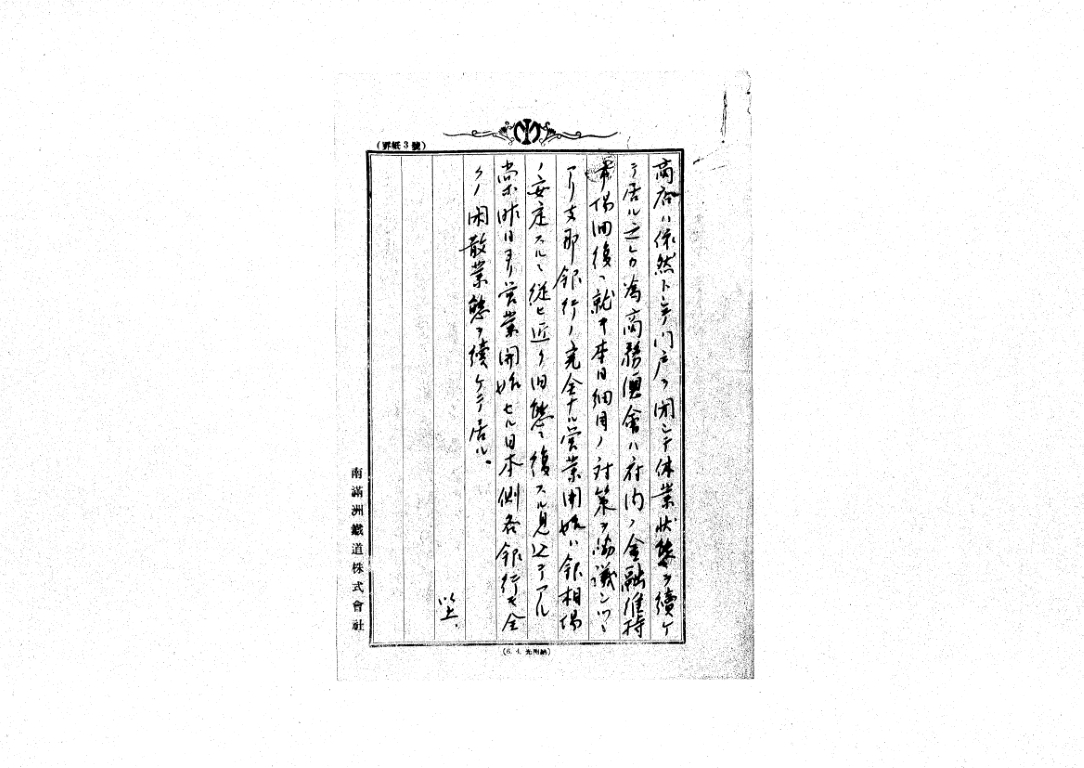 (號3紙罫)
商店ハ依然トシテ門戸ヲ閉シテ休業状態ヲ續ケ
テ居ル之レカ為商務總會ハ府内ノ金融維持
市場回復ニ就キ本日細目ノ対策ヲ協議シツヽ
アリ支那銀行ノ完全ナル営業開始ハ銀相場
ノ安定スルニ従ヒ近ク旧態ニ復スル見込テアル
尚ホ昨日ヨリ営業開始セル日本側各銀行モ全
クノ閑散業態ヲ續ケテ居ル。
以上.
南滿洲鐵道株式會社